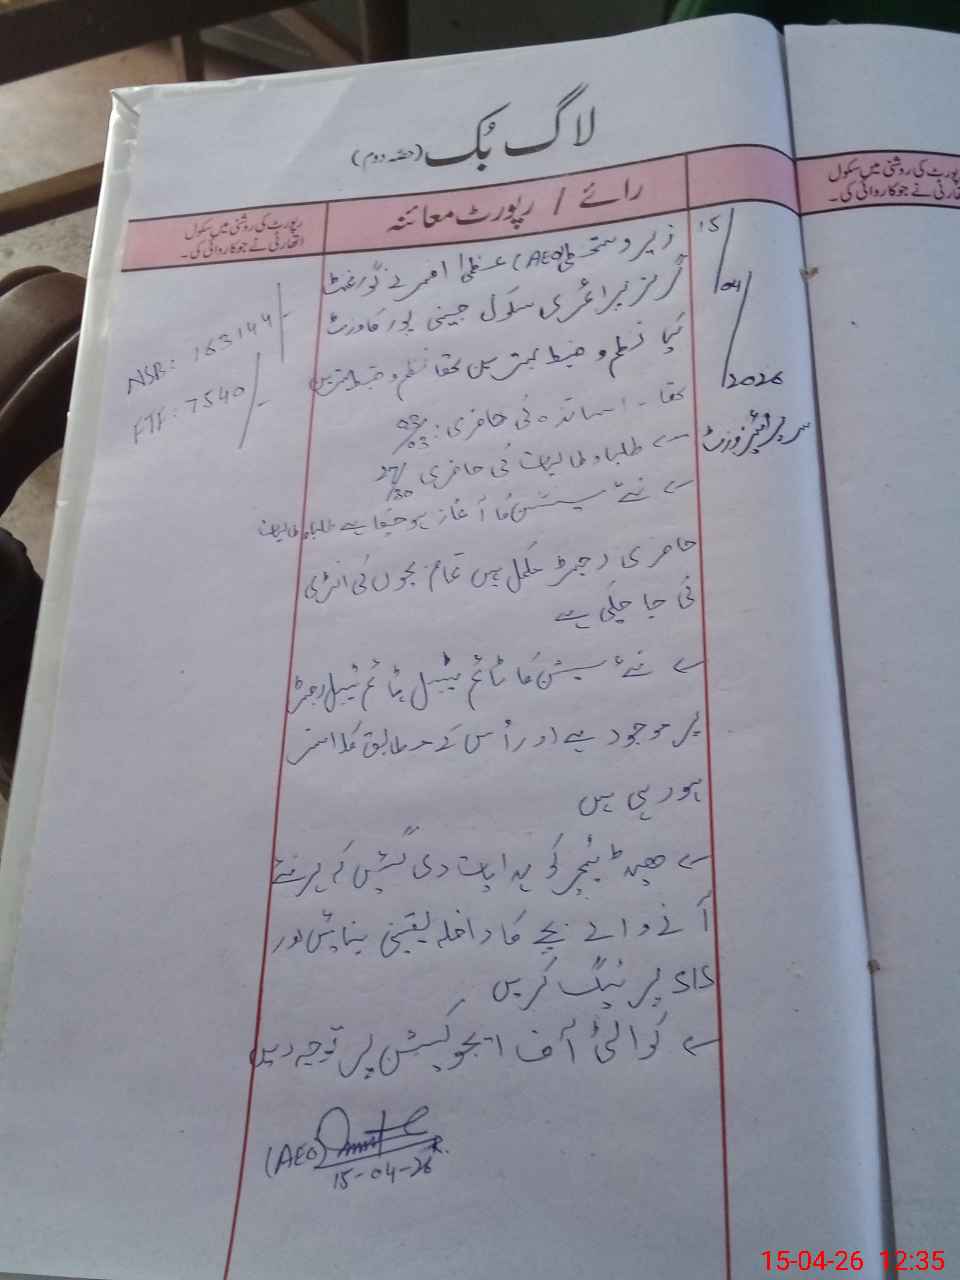 لاگ بُک (حصّہ دوم)
رائے / رپورٹ معائنہ
رپورٹ کی روشنی میں سکول
اتھارٹی نے جو کارروائی کی۔
رپورٹ کی روشنی میں سکول
اتھارٹی نے جو کارروائی کی۔
15/04/2026
سرپرائیز وزٹ
زیر دستخطی (AEO) عظمیٰ نے گورنمنٹ
گرلز پرائمری سکول پور کا وزٹ
کیا نظم و ضبط بہترین تھا نظم و ضبط بہترین
تھا - اساتذہ کی حاضری: 03/03
طلباء و طالبات کی حاضری 27/30
نئے سیشن کا آغاز ہو چکا ہے طلباء و طالبات
حاضری رجسٹر مکمل ہیں تمام بچوں کی انٹری
کی جا چکی ہے
نئے سیشن کا ٹائم ٹیبل ٹائم ٹیبل رجسٹر
پر موجود ہے اور اُس کے مطابق کلاسز
ہو رہی ہیں
ھیڈ ٹیچر کو ہدایات دی گئیں کہ ہر نئے
آنے والے بچے کا داخلہ یقینی بنائیں اور
SIS پر ٹیگ کریں
کوالٹی آف ایجوکیشن پر توجہ دیں
NSB: 163144/-
FTF: 7540/-
(AEO)
15-04-26
15-04-26 12:35